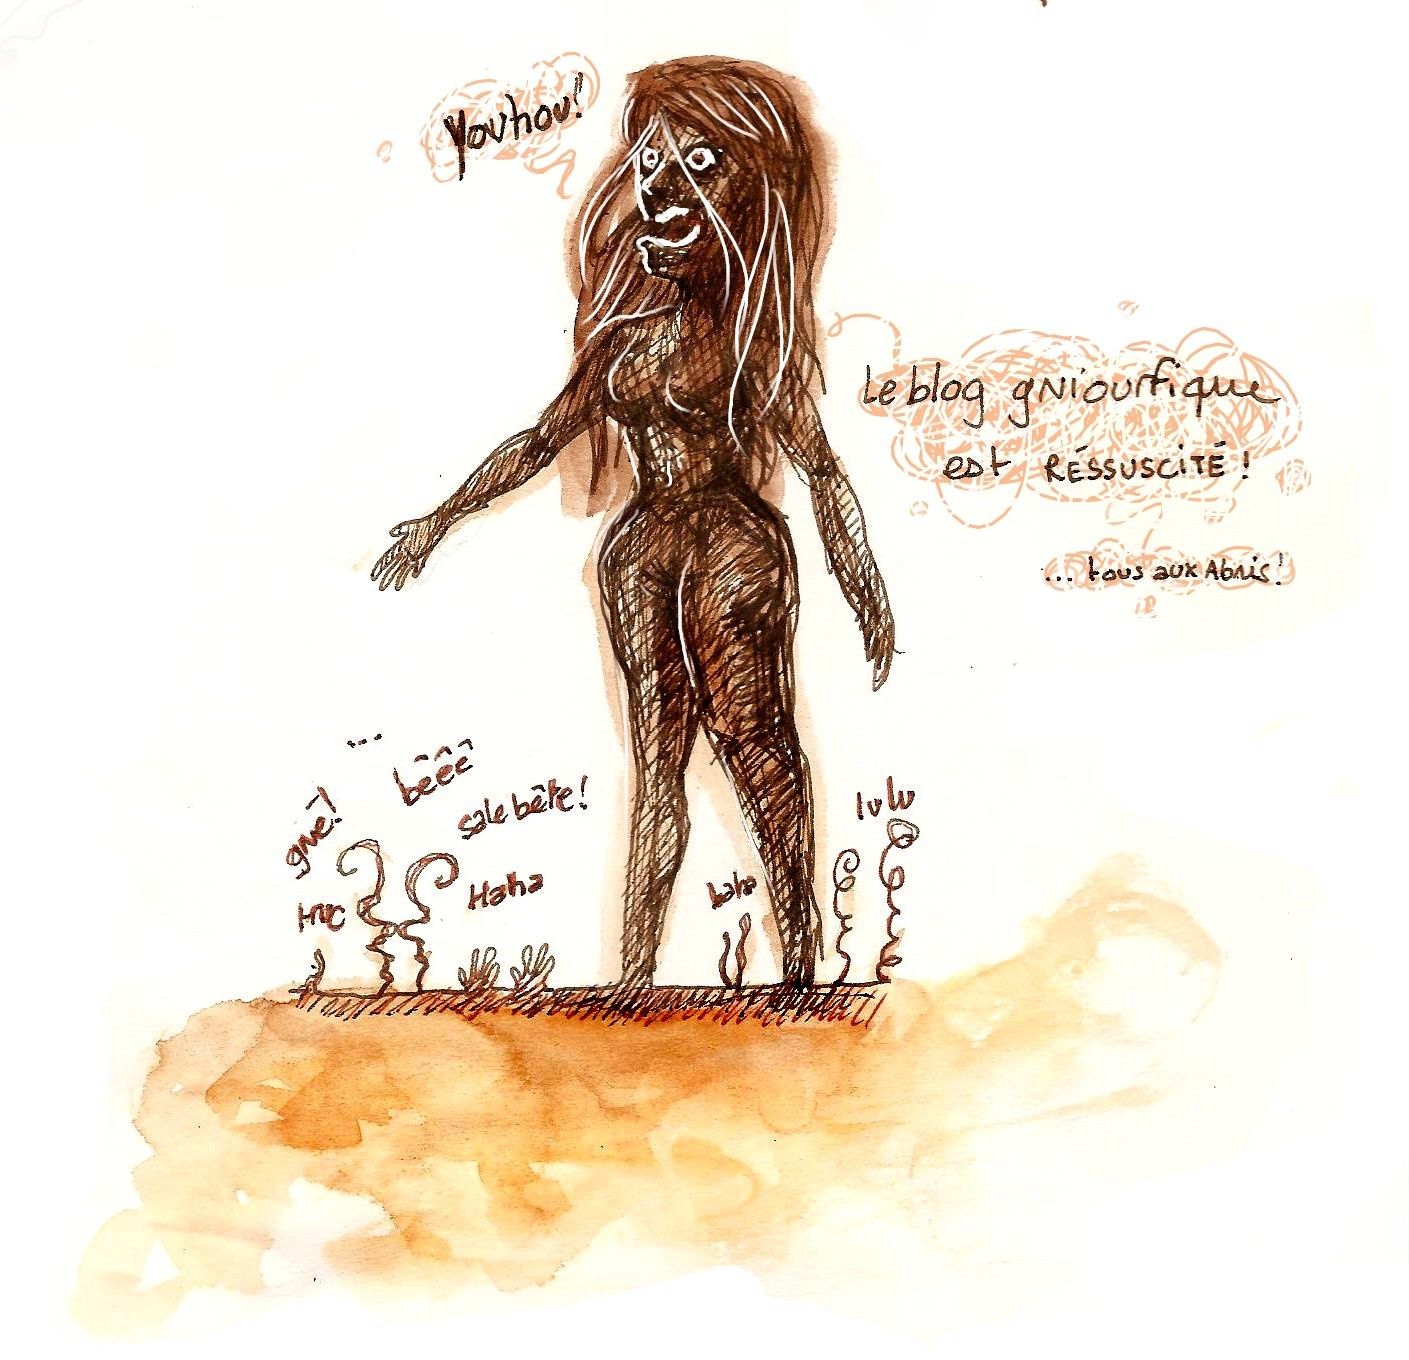 Youhou!
Le blog gniourfique
est RÉSSUSCITÉ !
... tous aux Abris!
...
bêêê
gnê!
sale bête!
lulu
Haha
haha